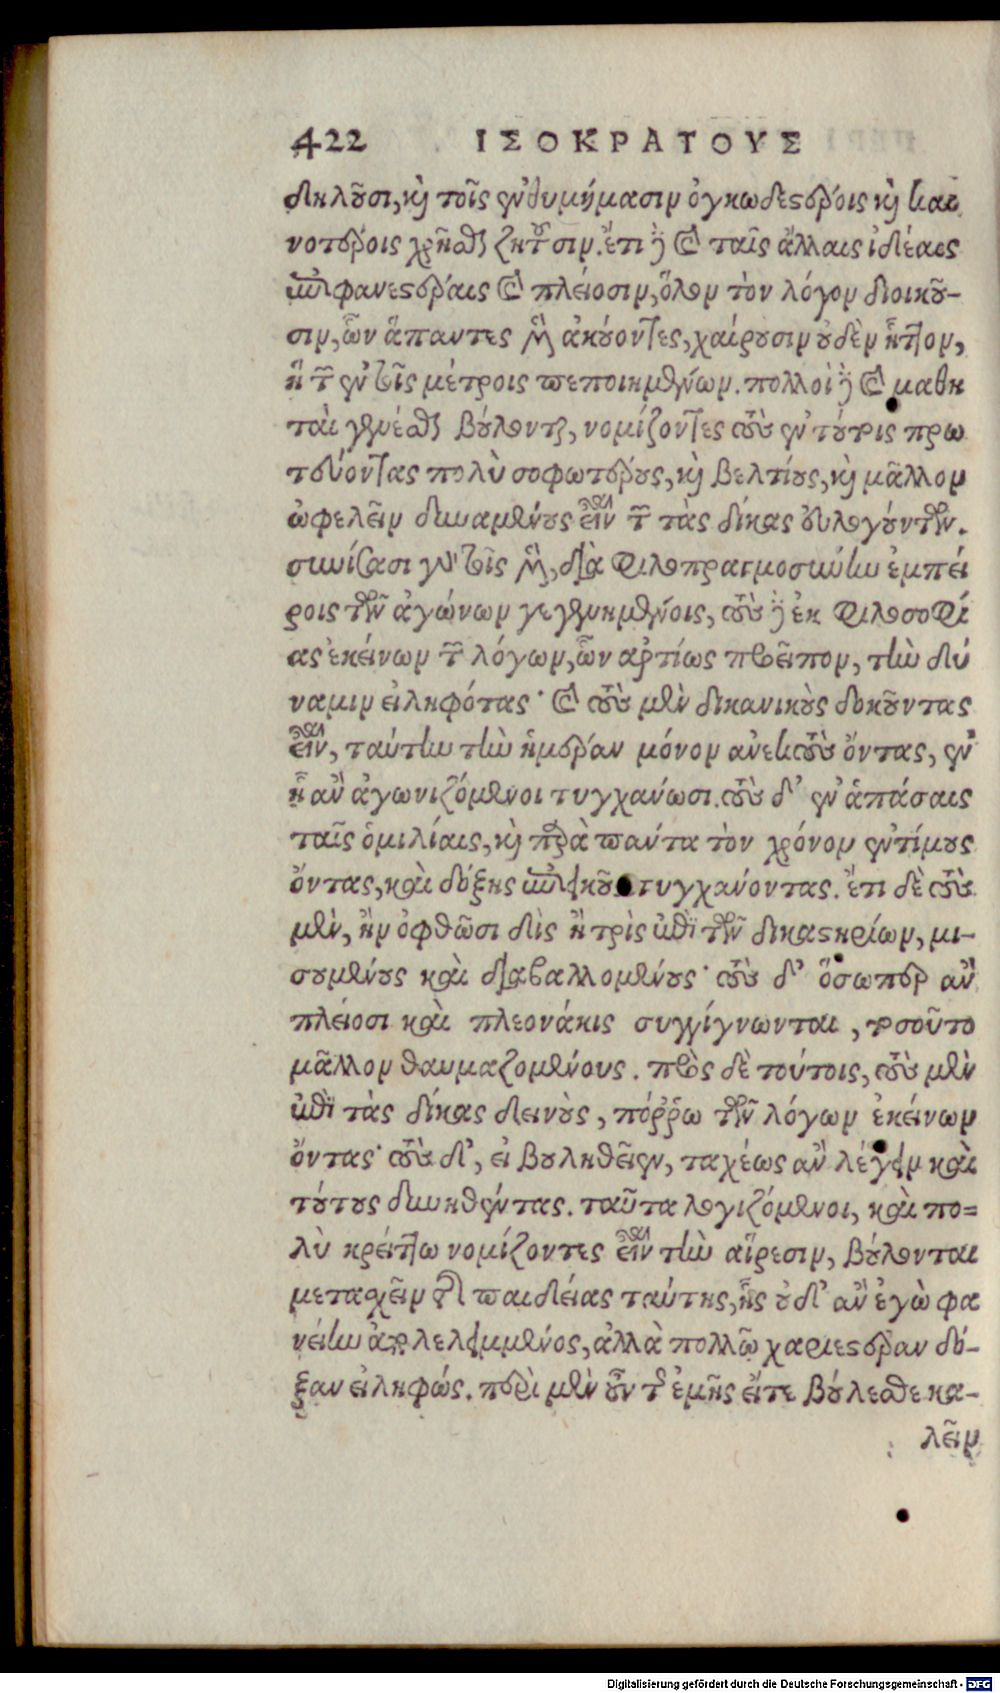 422 ΙΣΟΚΡΑΤΟΥΣ
δηλοῦσι, καὶ τοῖς ἐνθυμήμασιν ὀγκωδεστέροις καὶ και
νοτέροις χρῆσθαι ζητοῦσιν. ἔτι δὲ καὶ ταῖς ἄλλαις ἰδέαις
ἐπιφανεστέραις καὶ πλείοσιν, ὅλον τὸν λόγον διοικοῦ-
σιν, ὧν ἅπαντες μὲν ἀκούοντες, χαίρουσιν οὐδὲν ἧττον,
ἢ τῶν ἐν τοῖς μέτροις πεποιημένων. πολλοὶ δὲ καὶ μαθη
ταὶ γενέσθαι βούλονται, νομίζοντες τοὺς ἐν τούτοις πρω
τεύοντας πολὺ σοφωτέρους, καὶ βελτίους, καὶ μᾶλλον
ὠφελεῖν δυναμένους εἶναι τῶν τὰς δίκας εὖ λεγόντων.
συνίσασι γὰρ τοῖς μὲν, διὰ φιλοπραγμοσύνην ἐμπεί
ροις τῶν ἀγώνων γεγενημένοις, τοὺς δὲ ἐκ φιλοσοφί
ας ἐκείνων τῶν λόγων, ὧν ἀρτίως προεῖπον, τὴν δύ
ναμιν εἰληφότας· καὶ τοὺς μὲν δικανικοὺς δοκοῦντας
εἶναι, ταύτην τὴν ἡμέραν μόνον ἀνεκτοὺς ὄντας, ἐν
ᾗ ἂν ἀγωνιζόμενοι τυγχάνωσι. τοὺς δ’ ἐν ἁπάσαις
ταῖς ὁμιλίαις, καὶ παρὰ πάντα τὸν χρόνον ἐντίμους
ὄντας, καὶ δόξης ἐπιεικοῦς τυγχάνοντας. ἔτι δὲ τοὺς
μὲν, ἢν ὀφθῶσι δὶς ἢ τρὶς ἐπὶ τῶν δικαστηρίων, μι-
σουμένους καὶ διαβαλλομένους· τοὺς δ’ ὅσωπερ ἂν
πλείοσι καὶ πλεονάκις συγγίγνωνται, τοσοῦτο
μᾶλλον θαυμαζομένους. πρὸς δὲ τούτοις, τοὺς μὲν
ἐπὶ τὰς δίκας δεινοὺς, πόῤῥω τῶν λόγων ἐκείνων
ὄντας· τοὺς δ’, εἰ βουληθεῖεν, ταχέως ἂν λέγειν καὶ
τούτους δυνηθέντας. ταῦτα λογιζόμενοι, καὶ πο-
λὺ κρείττω νομίζοντες εἶναι τὴν αἵρεσιν, βούλονται
μετασχεῖν τῆς παιδείας ταύτης, ἧς οὐδ’ ἂν ἐγὼ φα
νείην ἀπολελειμμένος, ἀλλὰ πολλῷ χαριεστέραν δό-
ξαν εἰληφώς. περὶ μὲν οὖν τῆς ἐμῆς εἴτε βούλεσθε κα-
λεῖν
Digitalisierung gefördert durch die Deutsche Forschungsgemeinschaft - DFG